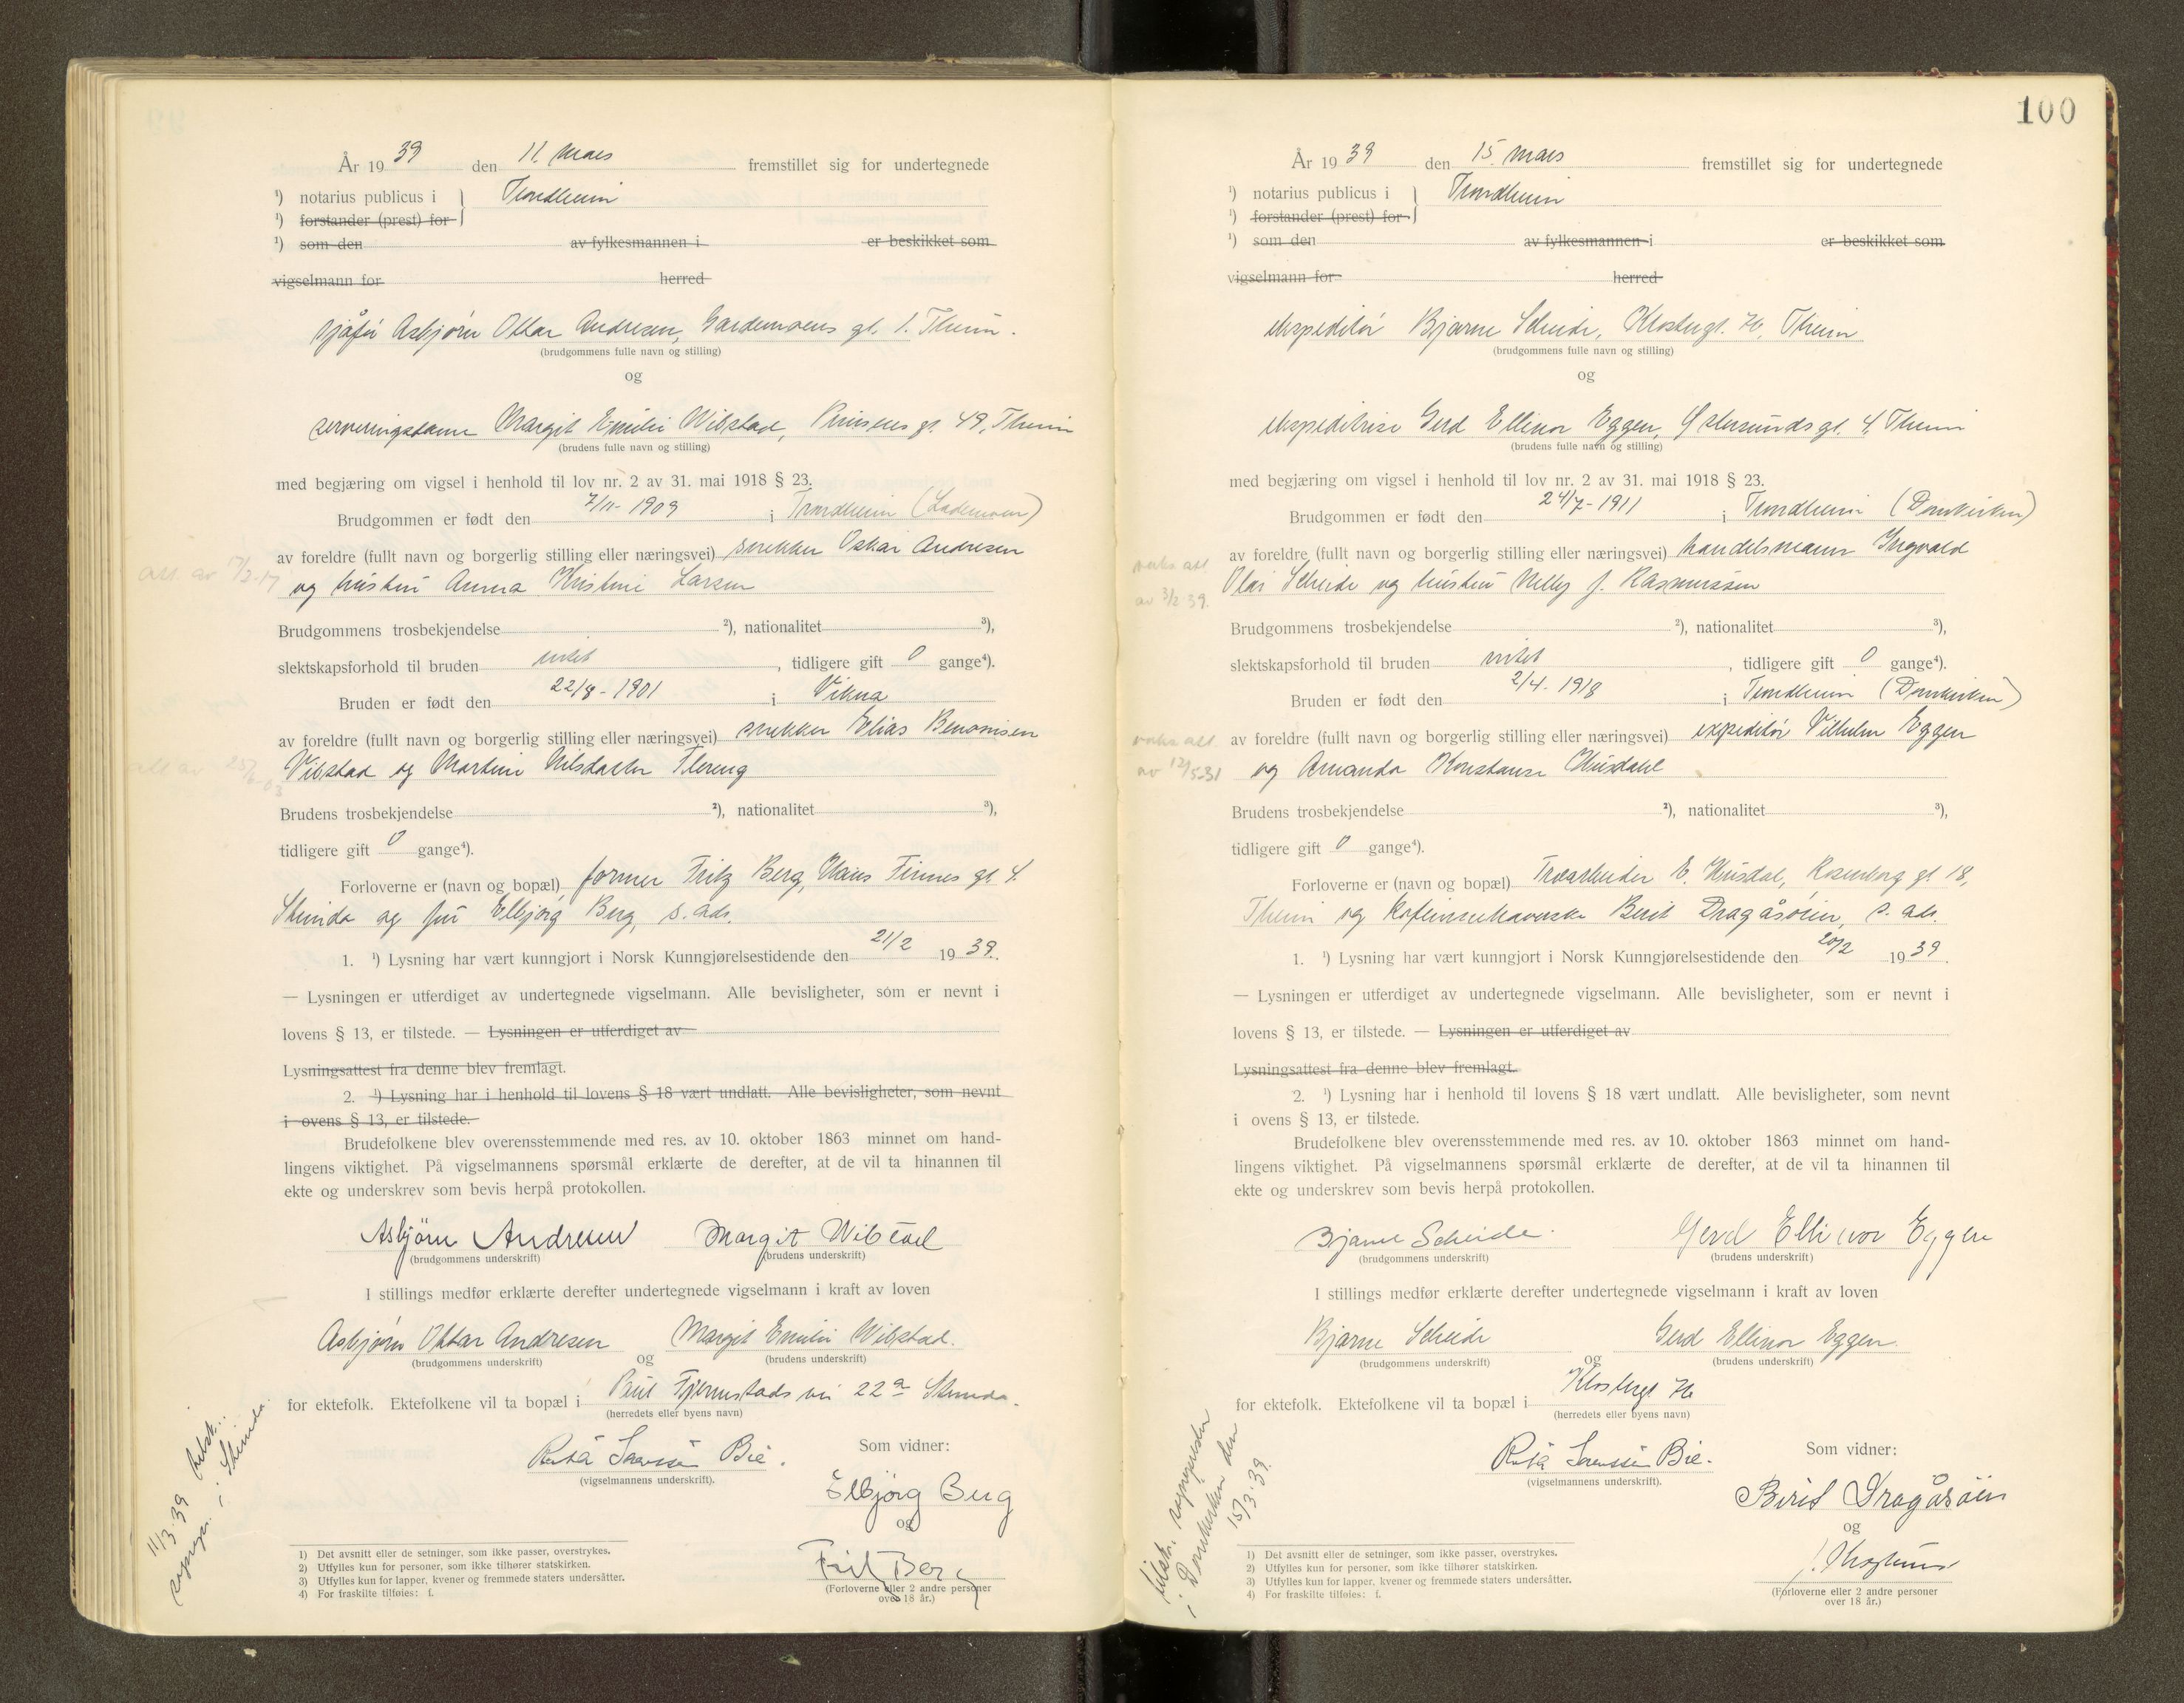 År 1939 den 11. mars fremstillet sig for undertegnede
¹) notarius publicus i } Trondheim
¹) forstander (prest) for
¹) som den av fylkesmannen i er beskikket som
vigselmann for herred
sjåfør Asbjørn Ottar Andresen, Gardemoens gt. 1. Theim.
(brudgommens fulle navn og stilling)
og
serveringsdame Margit Emilie Wibstad, Prinsens gt. 49, Theim
(brudens fulle navn og stilling)
med begjæring om vigsel i henhold til lov nr. 2 av 31. mai 1918 § 23.
Brudgommen er født den 7/11-1909 i Trondheim (Lademoen)
av foreldre (fullt navn og borgerlig stilling eller næringsvei) snekker Oskar Andresen
att. av
og hustru Anna Kristine Larsen
Brudgommens trosbekjendelse ²), nationalitet ³),
slektskapsforhold til bruden intet, tidligere gift 0 gange⁴).
Bruden er født den 22/8-1901 i Vikna
av foreldre (fullt navn og borgerlig stilling eller næringsvei) snekker Elias Benonisen
att av
Vibstad og Martine Nilsdatter Flereng
Brudens trosbekjendelse ²), nationalitet ³),
tidligere gift 0 gange⁴).
Forloverne er (navn og bopæl) former Fritz Berg, Hans Finnes gt. 4.
Strinda og fru Elbjørg Berg, s. ads.
1. ¹) Lysning har vært kunngjort i Norsk Kunngjørelsestidende den 21/2 1939.
— Lysningen er utferdiget av undertegnede vigselmann. Alle bevisligheter, som er nevnt i
lovens § 13, er tilstede. — Lysningen er utferdiget av
Lysningsattest fra denne blev fremlagt.
2. ¹) Lysning har i henhold til lovens § 18 vært undlatt. Alle bevisligheter, som nevnt
i ovens § 13, er tilstede.
Brudefolkene blev overensstemmende med res. av 10. oktober 1863 minnet om hand-
lingens viktighet. På vigselmannens spørsmål erklærte de derefter, at de vil ta hinannen til
ekte og underskrev som bevis herpå protokollen.
Asbjørn Andresen Margit Wibstad
(brudgommens underskrift) (brudens underskrift)
I stillings medfør erklærte derefter undertegnede vigselmann i kraft av loven
Asbjørn Ottar Andresen og Margit Emilie Wibstad.
(brudgommens underskrift) (brudens underskrift)
for ektefolk. Ektefolkene vil ta bopæl i Paul Fjermstads vei 22a Strinda.
(herredets eller byens navn)
Bie.
(vigselmannens underskrift).
Som vidner:
Elbjørg Berg
og
Frit Berg
(Forloverne eller 2 andre personer
over 18 år.)
11/3-39 tilsk.
sogнepr. i Strinda.
1) Det avsnitt eller de setninger, som ikke passer, overstrykes.
2) Utfylles kun for personer, som ikke tilhører statskirken.
3) Utfylles kun for lapper, kvener og fremmede staters undersåtter.
4) For fraskilte tilføies: f.
100
År 1939 den 15. mars fremstillet sig for undertegnede
¹) notarius publicus i } Trondheim
¹) forstander (prest) for
¹) som den av fylkesmannen i er beskikket som
vigselmann for herred
ekspeditør Bjarne Scheide, Klostergt. 76, Theim
(brudgommens fulle navn og stilling)
og
ekspeditrise Gerd Ellinor Eggen, Østersunds gt. 4, Theim
(brudens fulle navn og stilling)
med begjæring om vigsel i henhold til lov nr. 2 av 31. mai 1918 § 23.
Brudgommen er født den 24/7-1911 i Trondheim (Domkirken)
av foreldre (fullt navn og borgerlig stilling eller næringsvei) handelsmann Ingvald
att.
av 3/2-39.
Olai Scheide og hustru Nelly f. Rasmussen
Brudgommens trosbekjendelse ²), nationalitet ³),
slektskapsforhold til bruden intet, tidligere gift 0 gange⁴).
Bruden er født den 2/4-1918 i Trondheim (Domkirken)
av foreldre (fullt navn og borgerlig stilling eller næringsvei) expeditør Vilhelm Eggen
att.
av 12/5-31
og Amanda Konstanse Husdahl
Brudens trosbekjendelse ²), nationalitet ³),
tidligere gift 0 gange⁴).
Forloverne er (navn og bopæl) Trearbeider E. Husdal, Rosenborg gt 18,
Theim og Berit Dragåsøien, s. ads.
1. ¹) Lysning har vært kunngjort i Norsk Kunngjørelsestidende den 20/2 1939.
— Lysningen er utferdiget av undertegnede vigselmann. Alle bevisligheter, som er nevnt i
lovens § 13, er tilstede. — Lysningen er utferdiget av
Lysningsattest fra denne blev fremlagt.
2. ¹) Lysning har i henhold til lovens § 18 vært undlatt. Alle bevisligheter, som nevnt
i ovens § 13, er tilstede.
Brudefolkene blev overensstemmende med res. av 10. oktober 1863 minnet om hand-
lingens viktighet. På vigselmannens spørsmål erklærte de derefter, at de vil ta hinannen til
ekte og underskrev som bevis herpå protokollen.
Bjarne Scheide. Gerd Ellinor Eggen
(brudgommens underskrift) (brudens underskrift)
I stillings medfør erklærte derefter undertegnede vigselmann i kraft av loven
Bjarne Scheide og Gerd Ellinor Eggen.
(brudgommens underskrift) (brudens underskrift)
for ektefolk. Ektefolkene vil ta bopæl i Klostergt 76
(herredets eller byens navn)
Bie.
(vigselmannens underskrift).
Som vidner:
Berit Dragåsøien
og
(Forloverne eller 2 andre personer
over 18 år.)
tilsk. sognepresten
i Domkirken den
15/3-39.
1) Det avsnitt eller de setninger, som ikke passer, overstrykes.
2) Utfylles kun for personer, som ikke tilhører statskirken.
3) Utfylles kun for lapper, kvener og fremmede staters undersåtter.
4) For fraskilte tilføies: f.